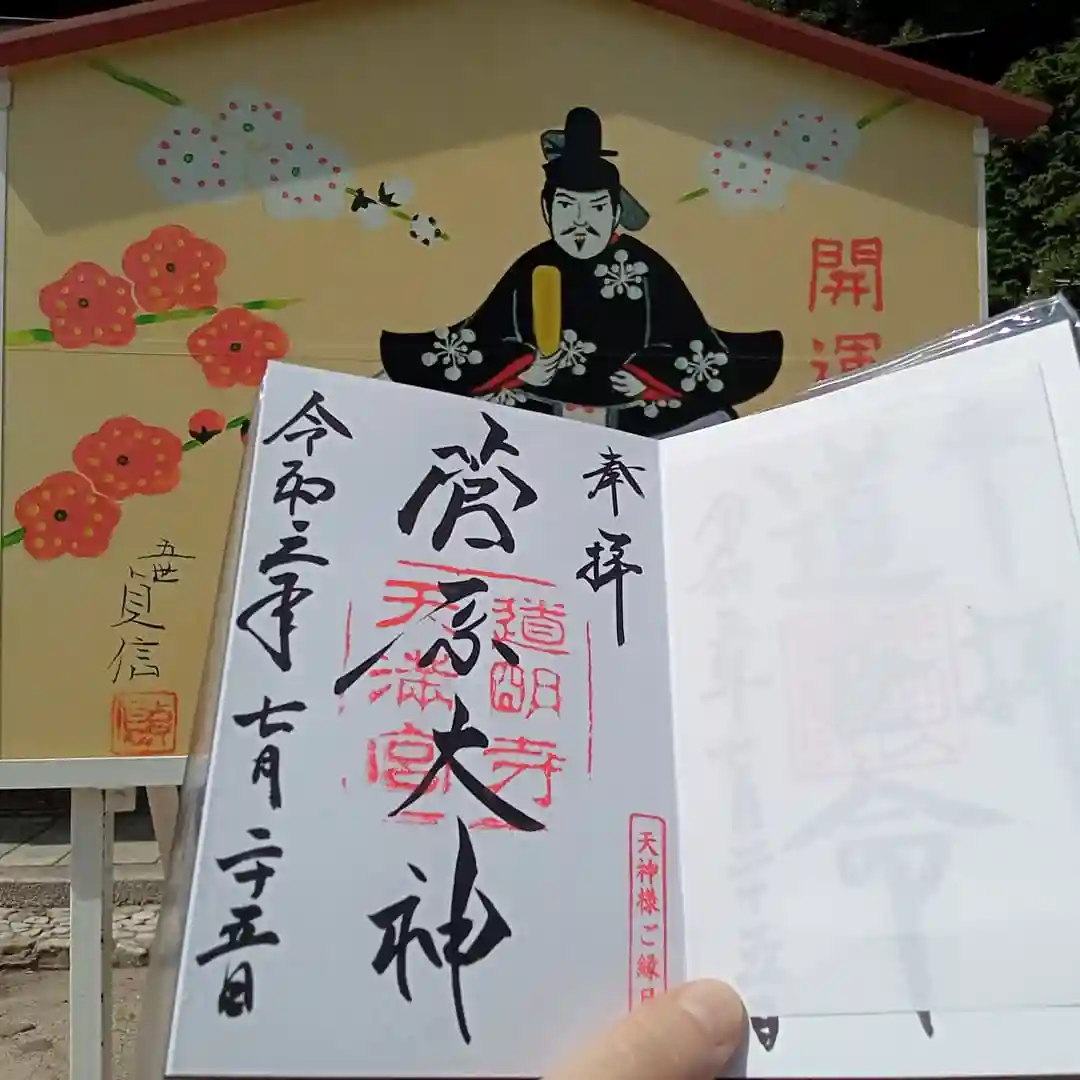 開運
五世
寛信
奉拝
菅原大神
道明寺
天満宮
天神様ご縁日
令和三年七月二十五日